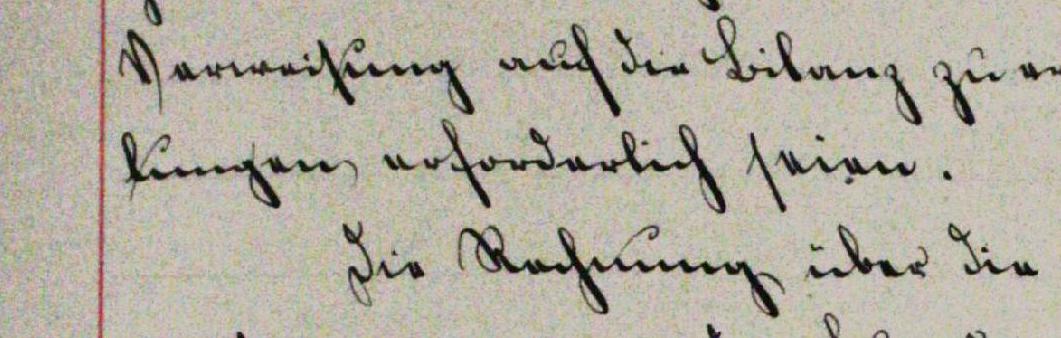 Verweisung auf die Bilanz zu
kungen erforderlich seien.
Die Rechnung über die